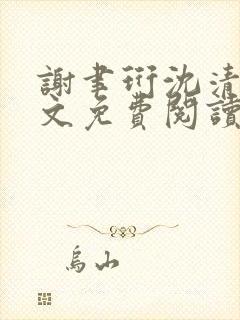 謝書珩沈清
文免費閱讀
烏山